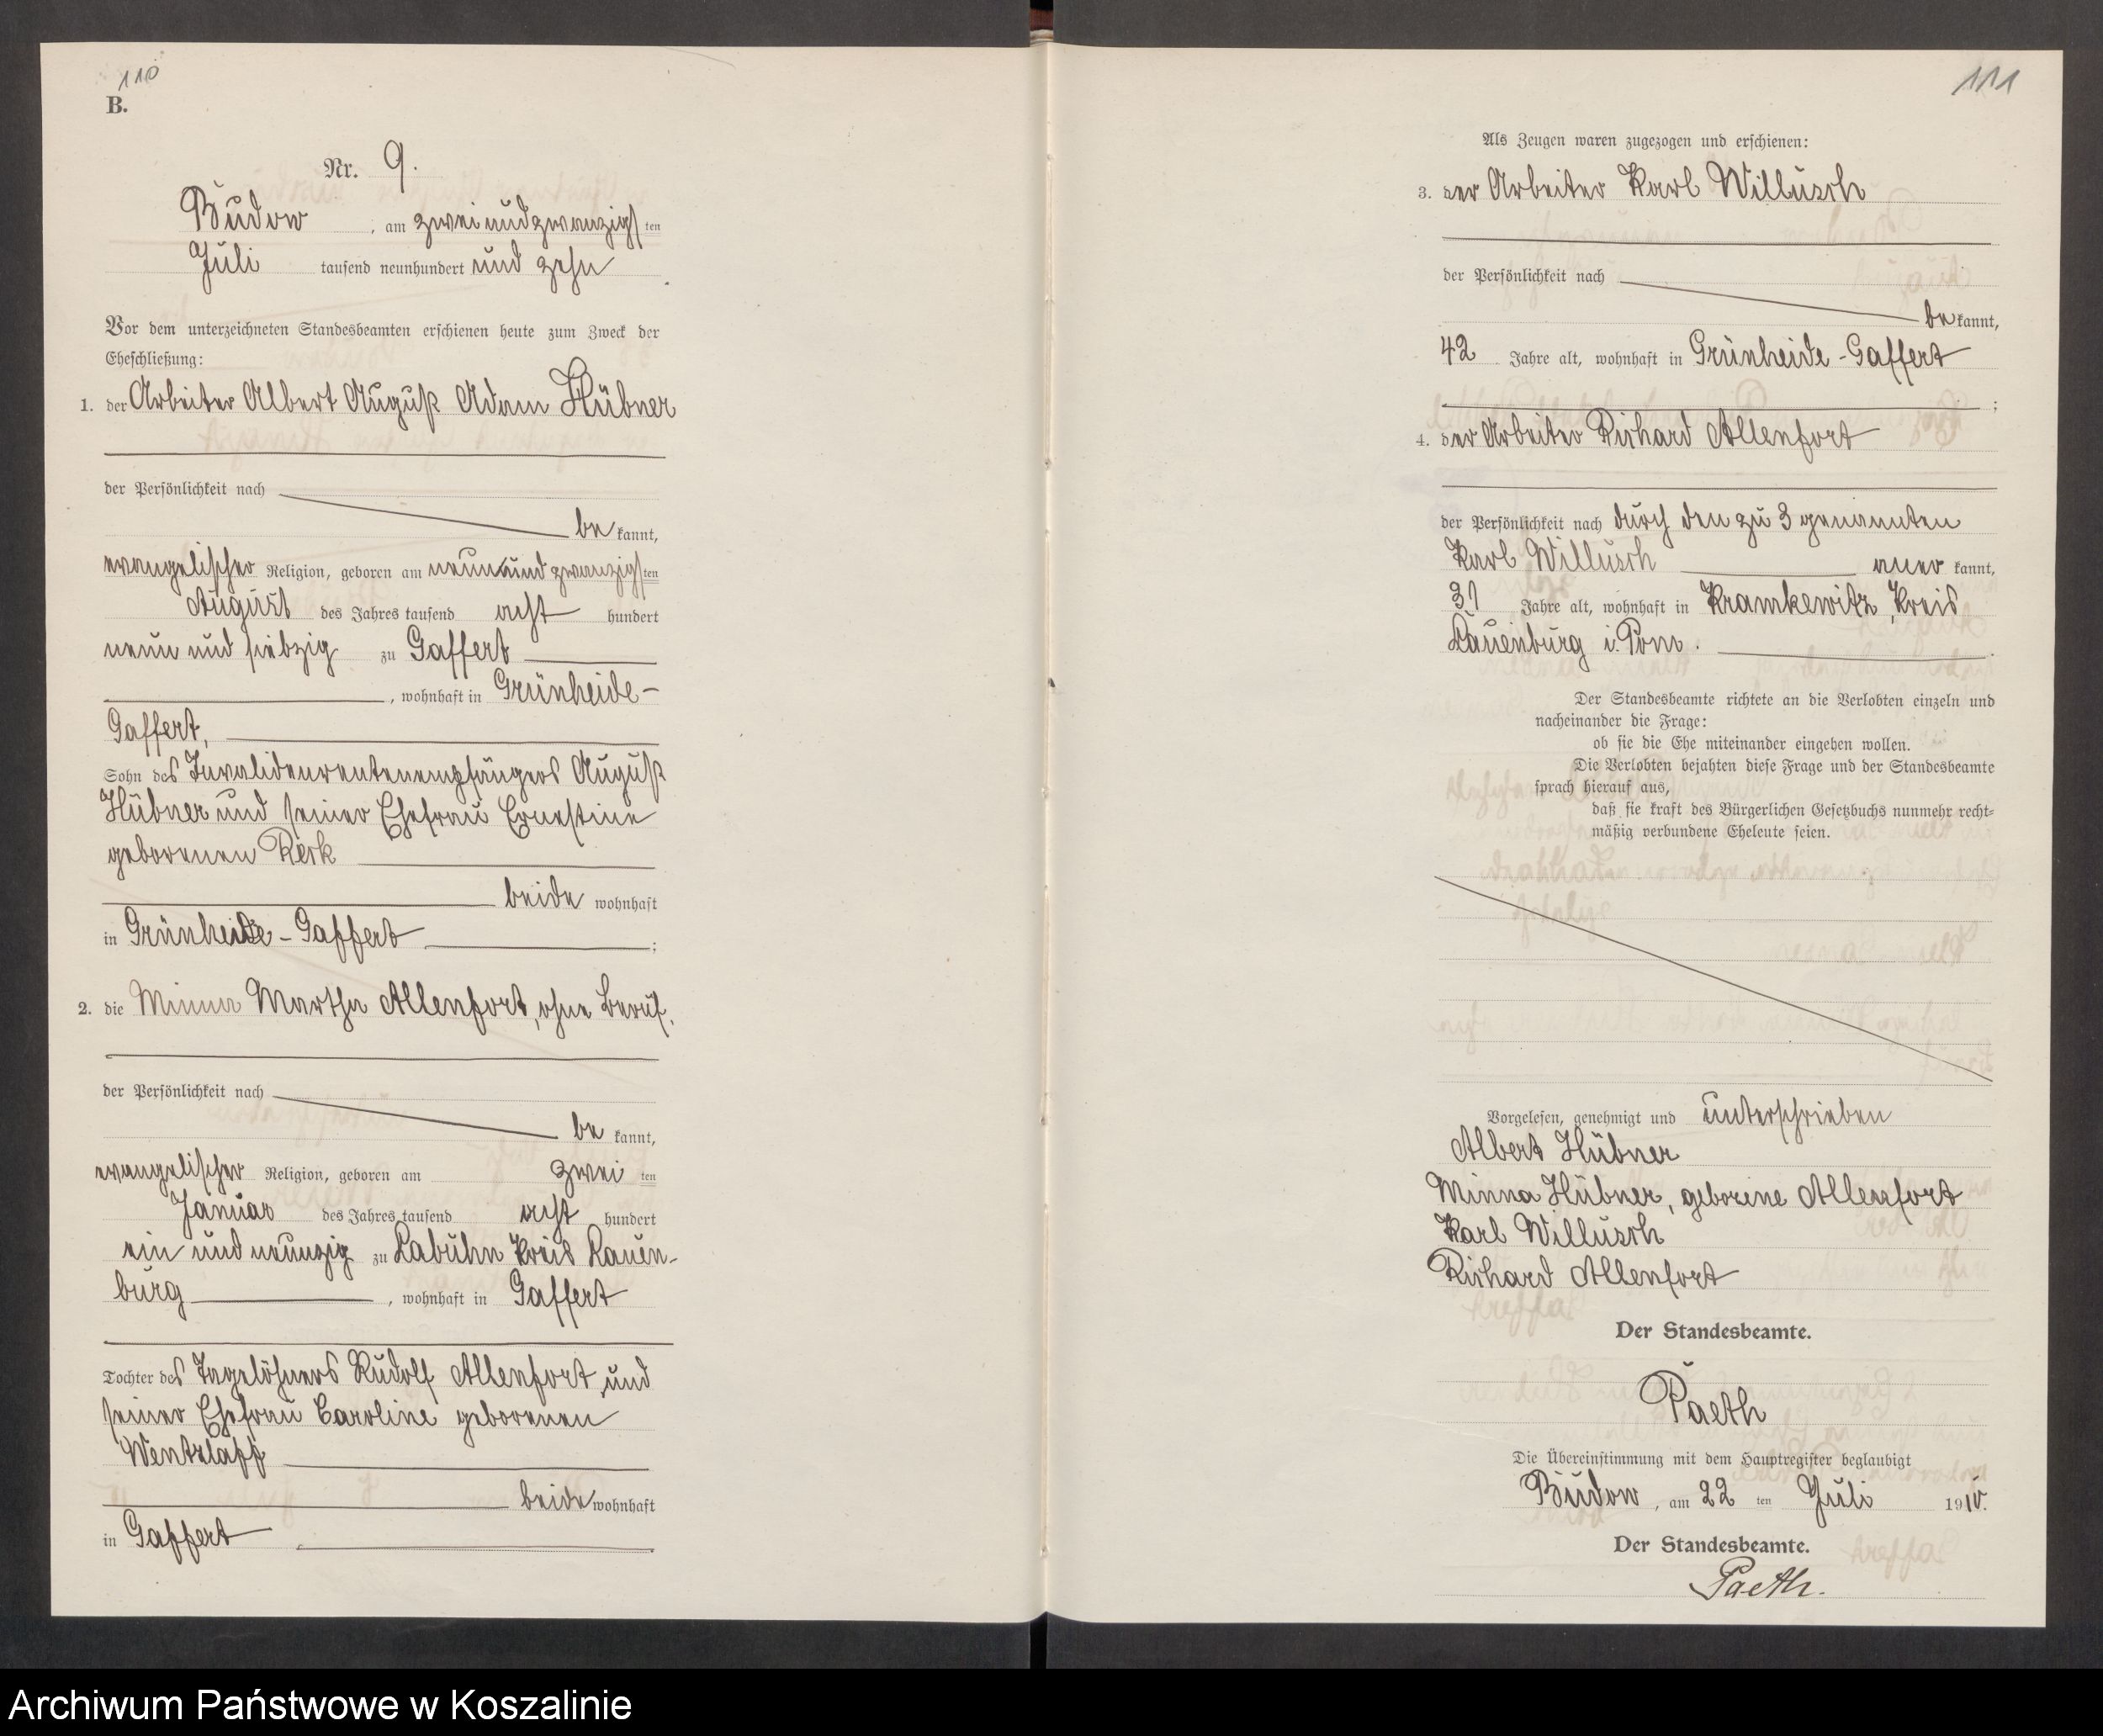 110
B.
Nr. 9.
Budow, am zweiundzwanzigsten
Juli tausend neunhundert und zehn
Vor dem unterzeichneten Standesbeamten erschienen heute zum Zweck der
Eheschließung:
1. der Arbeiter Albert August Adam Hübner
der Persönlichkeit nach
bekannt,
evangelischer Religion, geboren am neunundzwanzigsten
August des Jahres tausend acht hundert
neun und siebzig zu Gaffert
, wohnhaft in Grünheide-
Gaffert,
Sohn des Invalidenrentenempfängers August
Hübner und seiner Ehefrau Ernestine
geborenen
beide wohnhaft
in Grünheide-Gaffert ;
2. die Minna Martha Allenfort, ohne Beruf,
der Persönlichkeit nach
bekannt,
evangelischer Religion, geboren am zweiten
Januar des Jahres tausend acht hundert
ein und neunzig zu Labuhn Kreis Lauen-
burg , wohnhaft in Gaffert
Tochter des Tagelöhners Rudolf Allenfort und
seiner Ehefrau Caroline geborenen
Wentzlaff
beide wohnhaft
in Gaffert
111
Als Zeugen waren zugezogen und erschienen:
3. der Arbeiter Karl Willusch
der Persönlichkeit nach
bekannt,
42 Jahre alt, wohnhaft in Grünheide-Gaffert
;
4. der Arbeiter Richard Allenfort
der Persönlichkeit nach durch den zu 3 genannten
Karl Willusch anerkannt,
31 Jahre alt, wohnhaft in Kramkewitz, Kreis
Lauenburg i. Pom.
Der Standesbeamte richtete an die Verlobten einzeln und
nacheinander die Frage:
ob sie die Ehe miteinander eingehen wollen.
Die Verlobten bejahten diese Frage und der Standesbeamte
sprach hierauf aus,
daß sie kraft des Bürgerlichen Gesetzbuchs nunmehr recht-
mäßig verbundene Eheleute seien.
Vorgelesen, genehmigt und unterschrieben
Albert Hübner
Minna Hübner, geborene Allenfort
Karl Willusch
Richard Allenfort
Der Standesbeamte.
Paeth
Die Übereinstimmung mit dem Hauptregister beglaubigt
Budow, am 22 ten Juli 1910.
Der Standesbeamte.
Paeth.
Archiwum Państwowe w Koszalinie